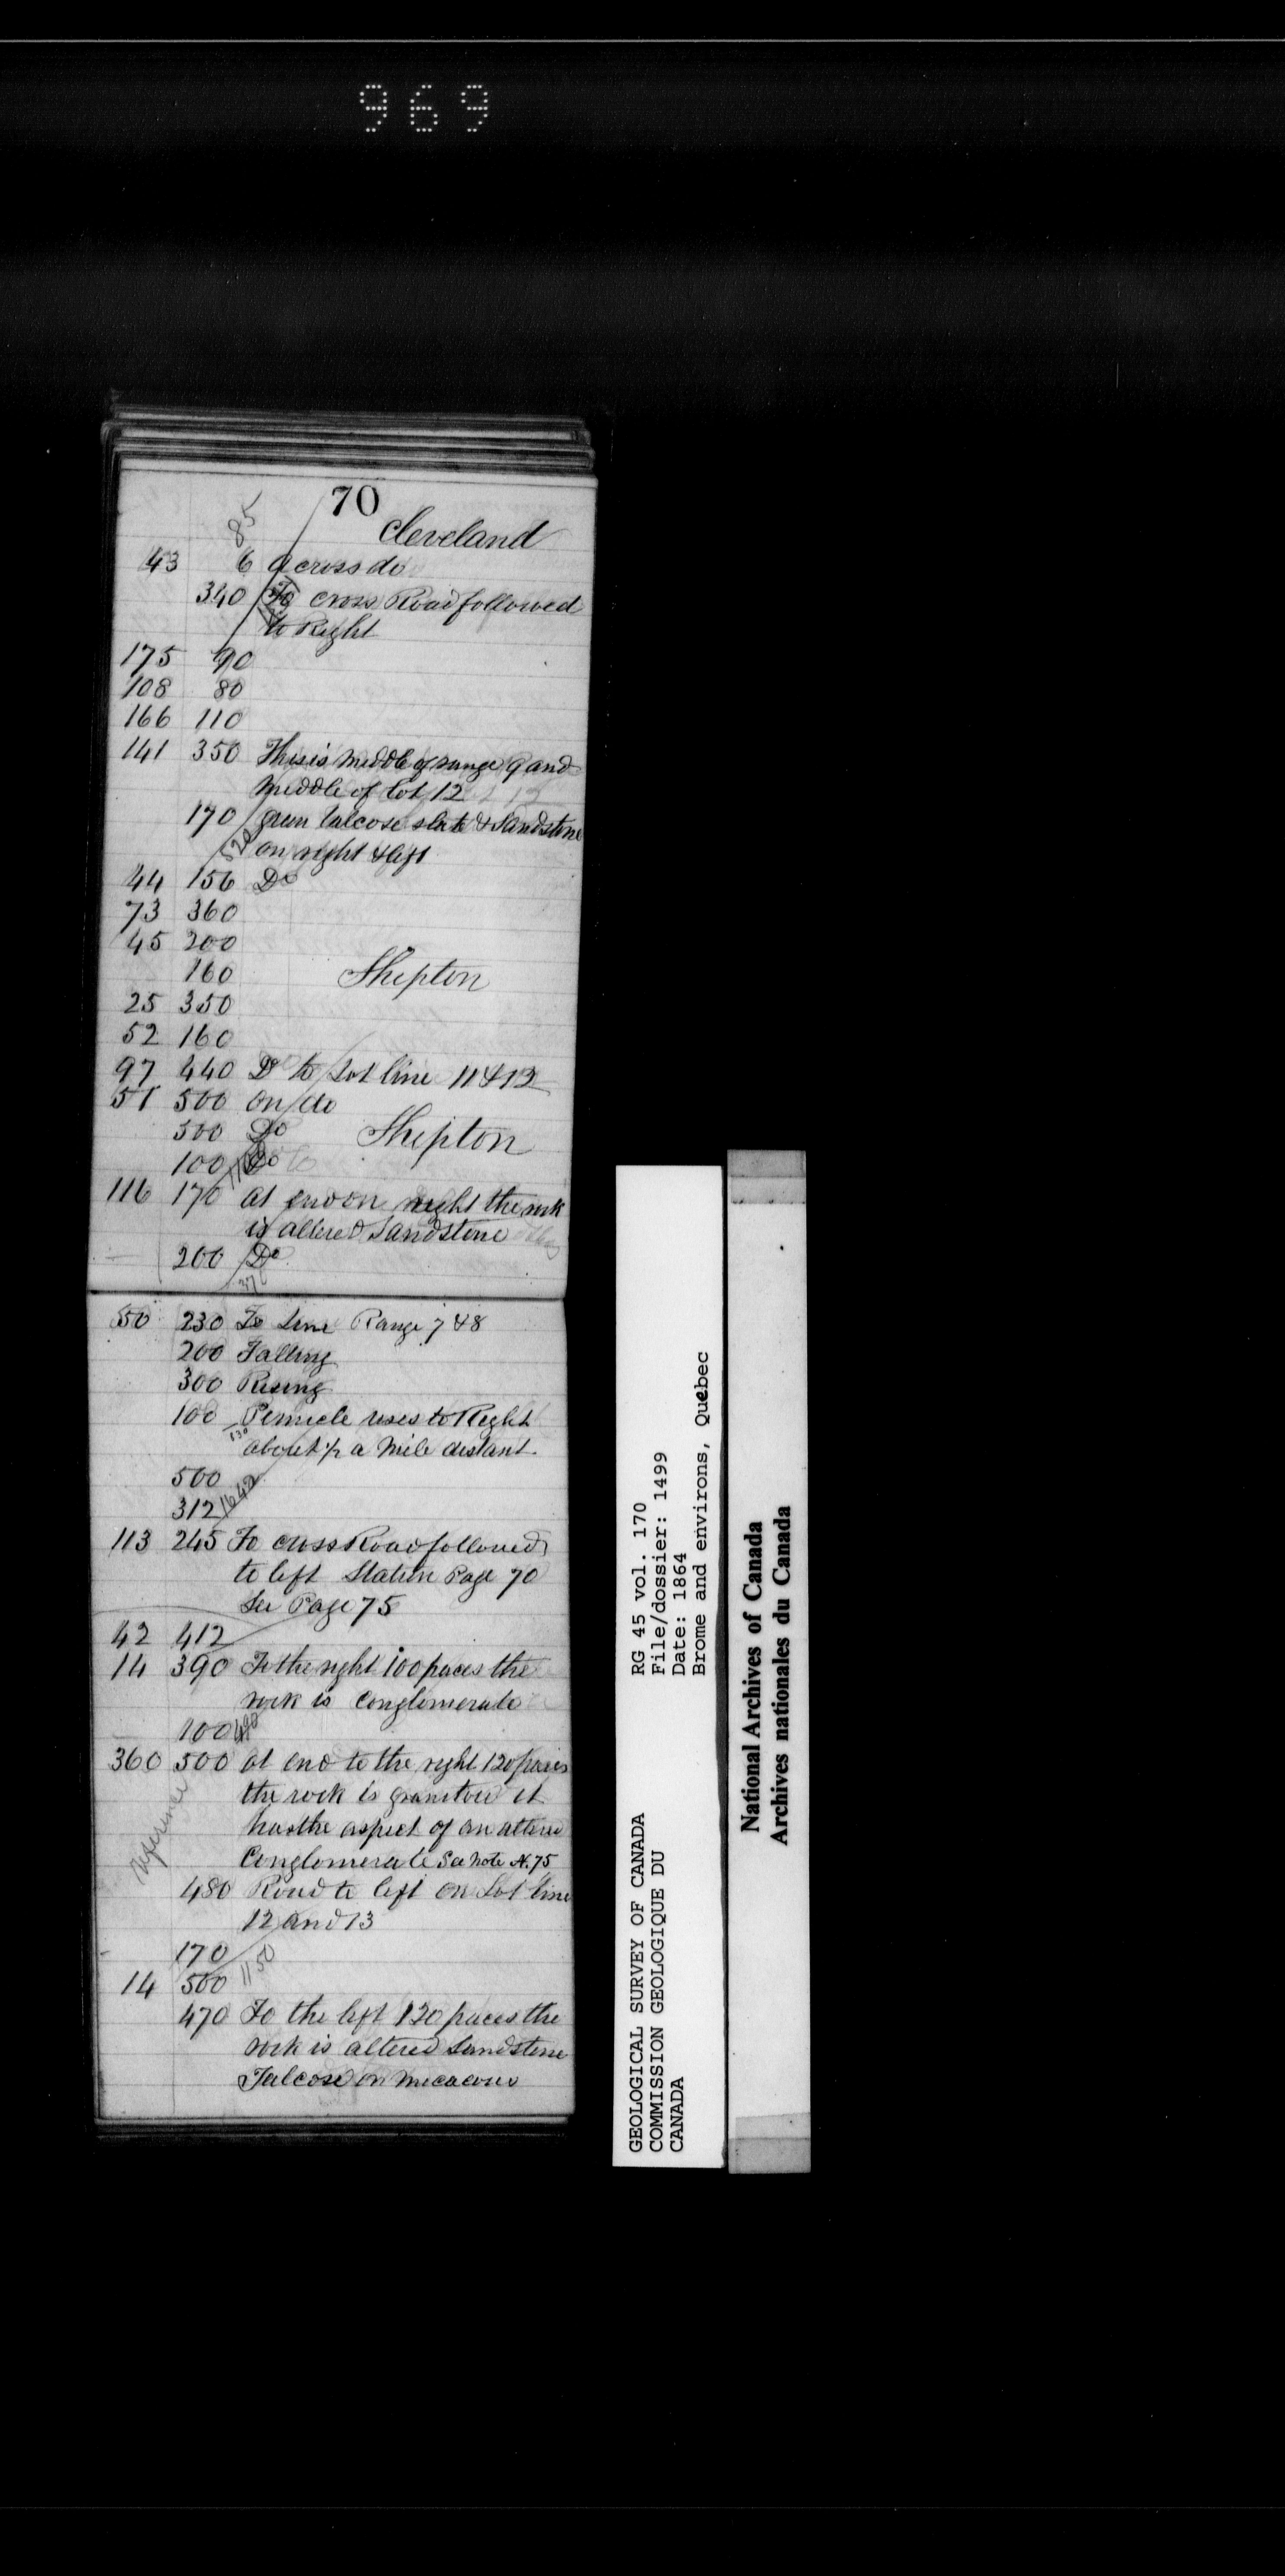 969
70
85
Cleveland
43 6 across do
340 To cross Road followed
to Right
175 90
108 80
166 110
141 350 This is middle of range 9 and
middle of lot 12
170 green talcose slate & Sandstone
520
on right & left
44 156 Do
73 360
45 200
160 Shipton
25 350
52 160
97 440 Do to Lot line 11 & 12
51 500 on do
500 Do Shipton
100 Do
1100
116 170 at end on right the rock
is altered Sandstone
200 Do
370
50 230 To Line Range 7 & 8
200 Falling
300 Rising
100 Pinnicle rises to Right
about 1/2 a mile distant
500
312 1642
113 245 To cross Road followed
to left Station Page 70
See Page 75
42 412
14 390 To the right 100 paces the
rock is Conglomerate
100 490
360 500 at end to the right 120 paces
the rock is granitoid it
has the aspect of an altered
Conglomerate See Note N. 75
reference
480 Road to left on Lot line
12 and 13
170 1150
14 500
470 To the left 120 paces the
rock is altered Sandstone
Talcose or micaceous
GEOLOGICAL SURVEY OF CANADA
COMMISSION GEOLOGIQUE DU
CANADA
RG 45 vol. 170
File/dossier: 1499
Date: 1864
Brome and environs, Quebec
National Archives of Canada
Archives nationales du Canada